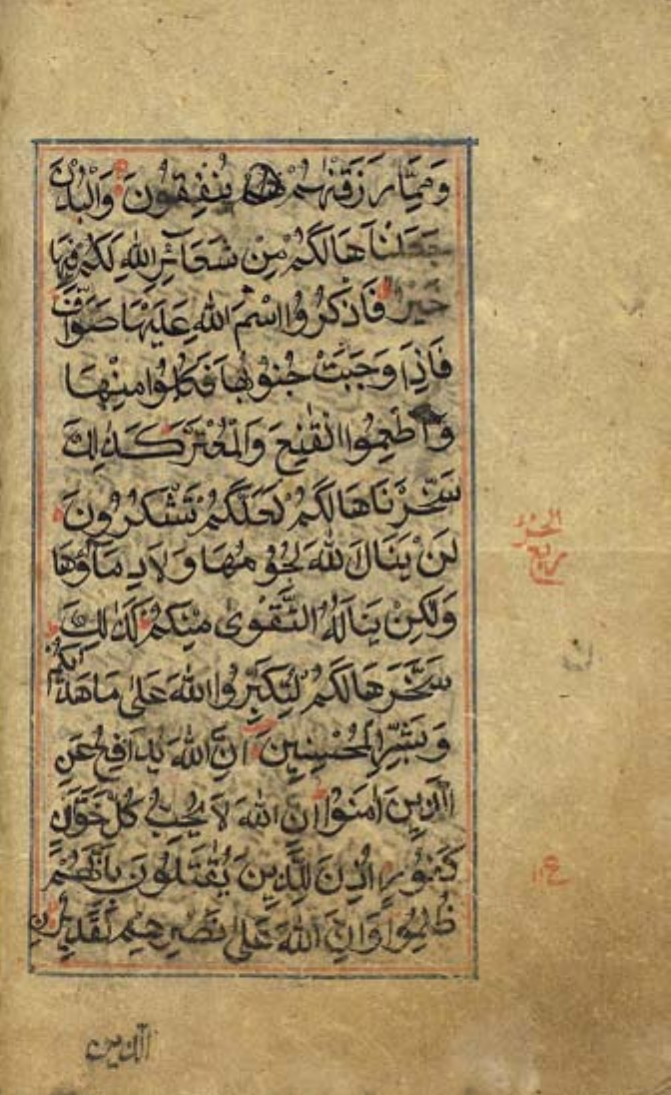 وَمِمَّا رَزَقْنٰهُمْ يُنْفِقُونَ وَالْبُدْنَ
جَعَلْنَاهَا لَكُمْ مِنْ شَعَآئِرِ اللهِ لَكُمْ فِيهَا
خَيْرٌ فَاذْكُرُوا اسْمَ اللهِ عَلَيْهَا صَوَآفَّ
فَاِذَا وَجَبَتْ جُنُوبُهَا فَكُلُوا مِنْهَا
وَاَطْعِمُوا الْقَٰنِعَ وَالْمُعْتَرَّ كَذٰلِكَ
سَخَّرْنَاهَا لَكُمْ لَعَلَّكُمْ تَشْكُرُونَ
لَنْ يَنَالَ اللهَ لُحُومُهَا وَلَا دِمَآؤُهَا
وَلٰكِنْ يَنَالُهُ التَّقْوٰى مِنْكُمْ كَذٰلِكَ
سَخَّرَهَا لَكُمْ لِتُكَبِّرُوا اللهَ عَلٰى مَا هَدٰىكُمْ
وَبَشِّرِ الْمُحْسِنِينَ اِنَّ اللهَ يُدَافِعُ عَنِ
الَّذِينَ اٰمَنُوا اِنَّ اللهَ لَا يُحِبُّ كُلَّ خَوَّانٍ
كَفُورٍ اُذِنَ لِلَّذِينَ يُقٰتَلُونَ بِاَنَّهُمْ
ظُلِمُوا وَاِنَّ اللهَ عَلٰى نَصْرِهِمْ لَقَدِيرٌ
الحزب
ربع
ع
الذين